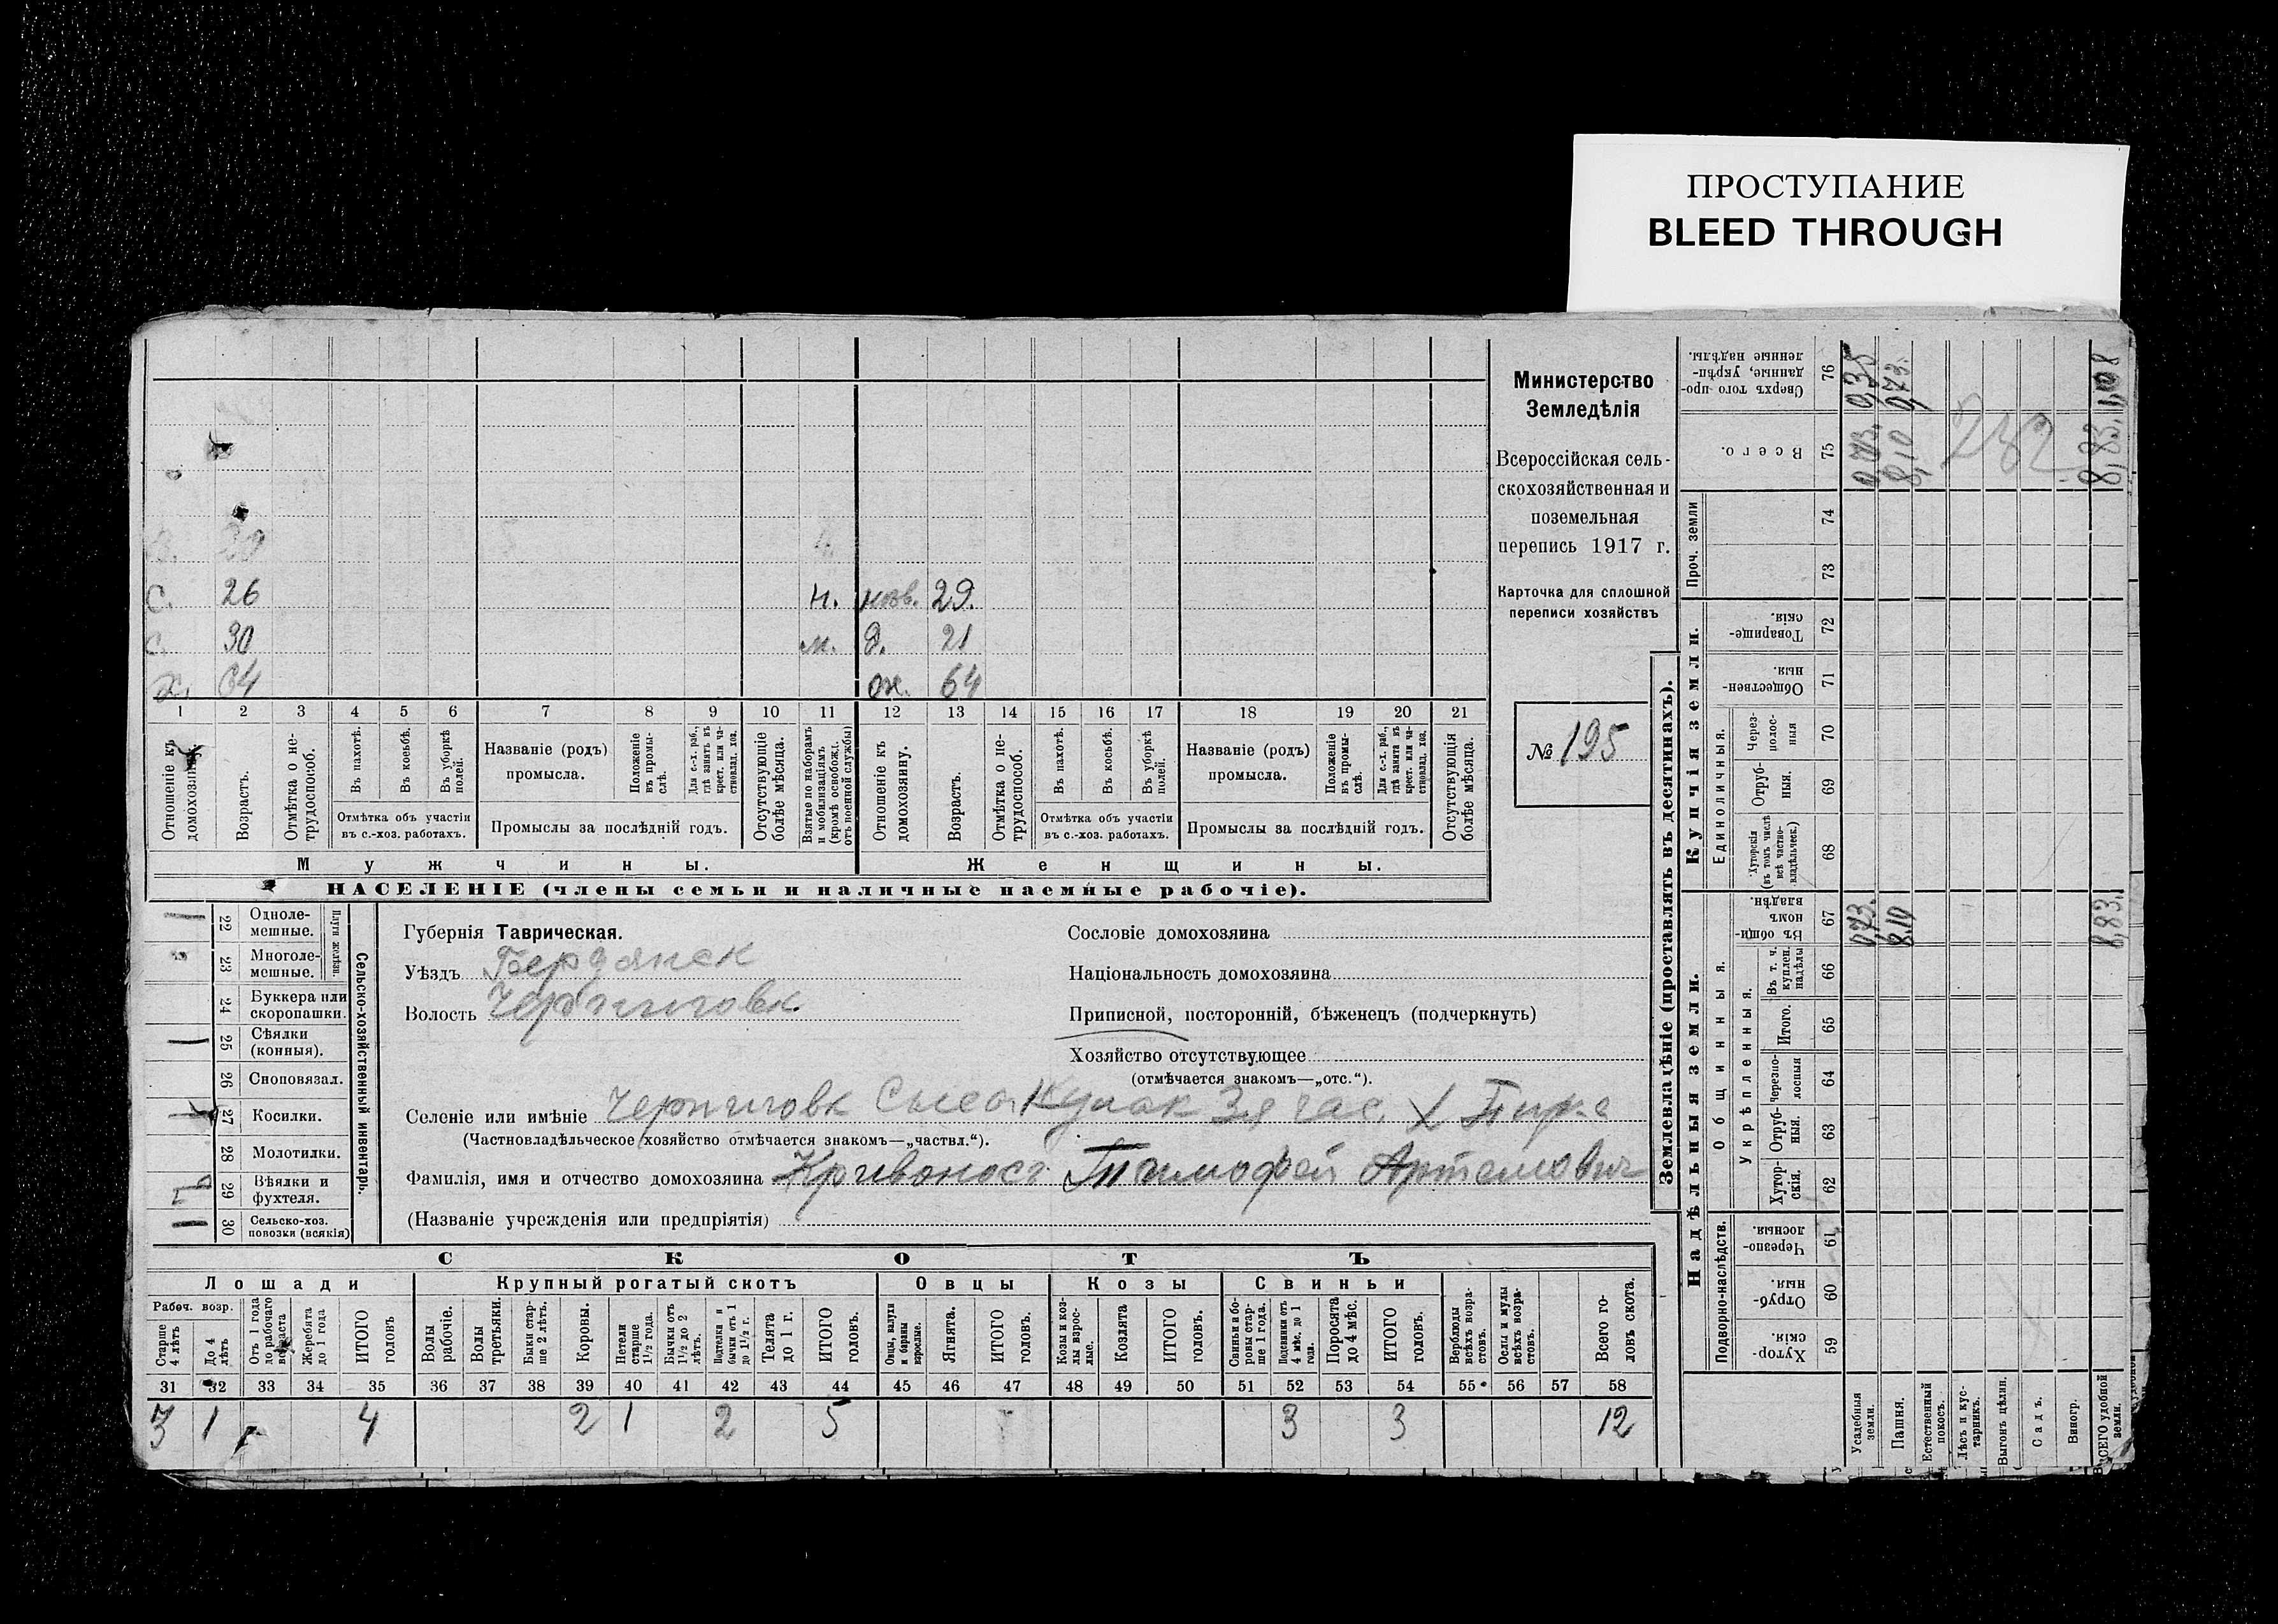 ПРОСТУПАНИЕ
BLEED THROUGH
Министерство
Земледѣлія
Всероссійская сель-
скохозяйственная и
поземельная
перепись 1917 г.
Карточка для сплошной
переписи хозяйствъ
№ 195
с. 26 н. 29.
с. 30 м. д. 21
х. 64 64
1 2 3 4 5 6 7 8 9 10 11 12 13 14 15 16 17 18 19 20 21
Отношеніе къ домохозяину.
Возрастъ.
Отмѣтка о не-трудоспособ.
Въ пахотѣ.
Въ косьбѣ.
Въ уборкѣ полей.
Отмѣтка объ участіи
въ с.-хоз. работахъ.
Названіе (родъ)
промысла.
Положеніе въ промы-слѣ.
Для с.-х. раб., гдѣ занятъ въ крест. или ча-стновлад. хоз.
Промыслы за послѣдній годъ.
Отсутствующіе болѣе мѣсяца.
Взятые по наборамъ и мобилизаціямъ (кромѣ освобожд. отъ военной службы)
Отношеніе къ домохозяину.
Возрастъ.
Отмѣтка о не-трудоспособ.
Въ пахотѣ.
Въ косьбѣ.
Въ уборкѣ полей.
Отмѣтка объ участіи
въ с.-хоз. работахъ.
Названіе (родъ)
промысла.
Положеніе въ промы-слѣ.
Для с.-х. раб., гдѣ занятъ въ крест. или ча-стновлад. хоз.
Промыслы за послѣдній годъ.
Отсутствующія болѣе мѣсяца.
Мужчины. Женщины.
НАСЕЛЕНІЕ (члены семьи и наличные наемные рабочіе).
22 Одноле-мешные.
23 Многоле-мешные.
Плуги желѣзн.
24 Буккера или скоропашки.
25 Сѣялки (конныя).
26 Сноповязал.
27 Косилки.
28 Молотилки.
29 Вѣялки и фухтеля.
30 Сельско-хоз. повозки (всякія)
Сельско-хозяйственный инвентарь.
Губернія Таврическая.
Уѣздъ Бердянск
Волость Черниговк.
Сословіе домохозяина
Національность домохозяина
Приписной, посторонній, бѣженецъ (подчеркнуть)
Хозяйство отсутствующее
(отмѣчается знакомъ—„отс.“).
Селеніе или имѣніе Черниговк
(Частновладѣльческое хозяйство отмѣчается знакомъ—„частвл.“).
Фамилія, имя и отчество домохозяина Кривоносъ Тимофей Артемович
(Названіе учрежденія или предпріятія)
СКОТЪ
Лошади Крупный рогатый скотъ Овцы Козы Свиньи
Рабоч. возр.
Старше 4 лѣтъ
До 4 лѣтъ
Отъ 1 года до рабочаго возраста
Жеребята до 1 года
ИТОГО головъ
Волы рабочіе.
Волы третьяки.
Быки стар-ше 2 лѣтъ.
Коровы.
Нетели старше 1 1/2 года.
Бычки отъ 1 1/2 до 2 лѣтъ.
Подтелки и бычки отъ 1 до 1 1/2 г.
Телята до 1 г.
ИТОГО головъ.
Овцы, валухи и бараны взрослые.
Ягнята.
ИТОГО головъ.
Козы и коз-лы взрос-лые.
Козлята
ИТОГО головъ.
Свиньи и бо-ровы стар-ше 1 года.
Подсвинки отъ 4 мѣс. до 1 года.
Поросята до 4 мѣс.
ИТОГО головъ.
Верблюды всѣхъ возра-стовъ.
Ослы и мулы всѣхъ возра-стовъ.
Всего го-ловъ скота.
31 32 33 34 35 36 37 38 39 40 41 42 43 44 45 46 47 48 49 50 51 52 53 54 55 56 57 58
3 1 4 2 1 2 5 3 3 12
Землевладѣніе (проставлять въ десятинахъ).
Надѣльныя земли. Купчія земли.
Подворно-наслѣдств.
Общинныя.
Укрѣпленныя.
Единоличныя.
Проч. земли
Хутор-скія. 59
Отруб-ныя. 60
Черезпо-лосныя. 61
Хутор-скія. 62
Отруб-ныя. 63
Черезпо-лосныя 64
Итого. 65
Въ т. ч. куплен. надѣлы 66
Въ общин-номъ владѣн. 67
Хуторскія (въ томъ числѣ всѣ частно-владѣльческ.) 68
Отруб-ныя. 69
Через-полос-ныя 70
Обществен-ныя 71
Товарище-скія 72
73
74
Всего. 75
Сверхъ того про-данные, укрѣп-ленные надѣлы. 76
Усадебныя земли.
Пашня.
Естественный покосъ.
Лѣсъ и кус-тарникъ.
Выгонъ цѣлин.
Садъ.
Виногр.
ВСЕГО удобной земли.
0,73.
8.10
8,83.
0,73. 0,35
8,10 0,73.
232
8,83.